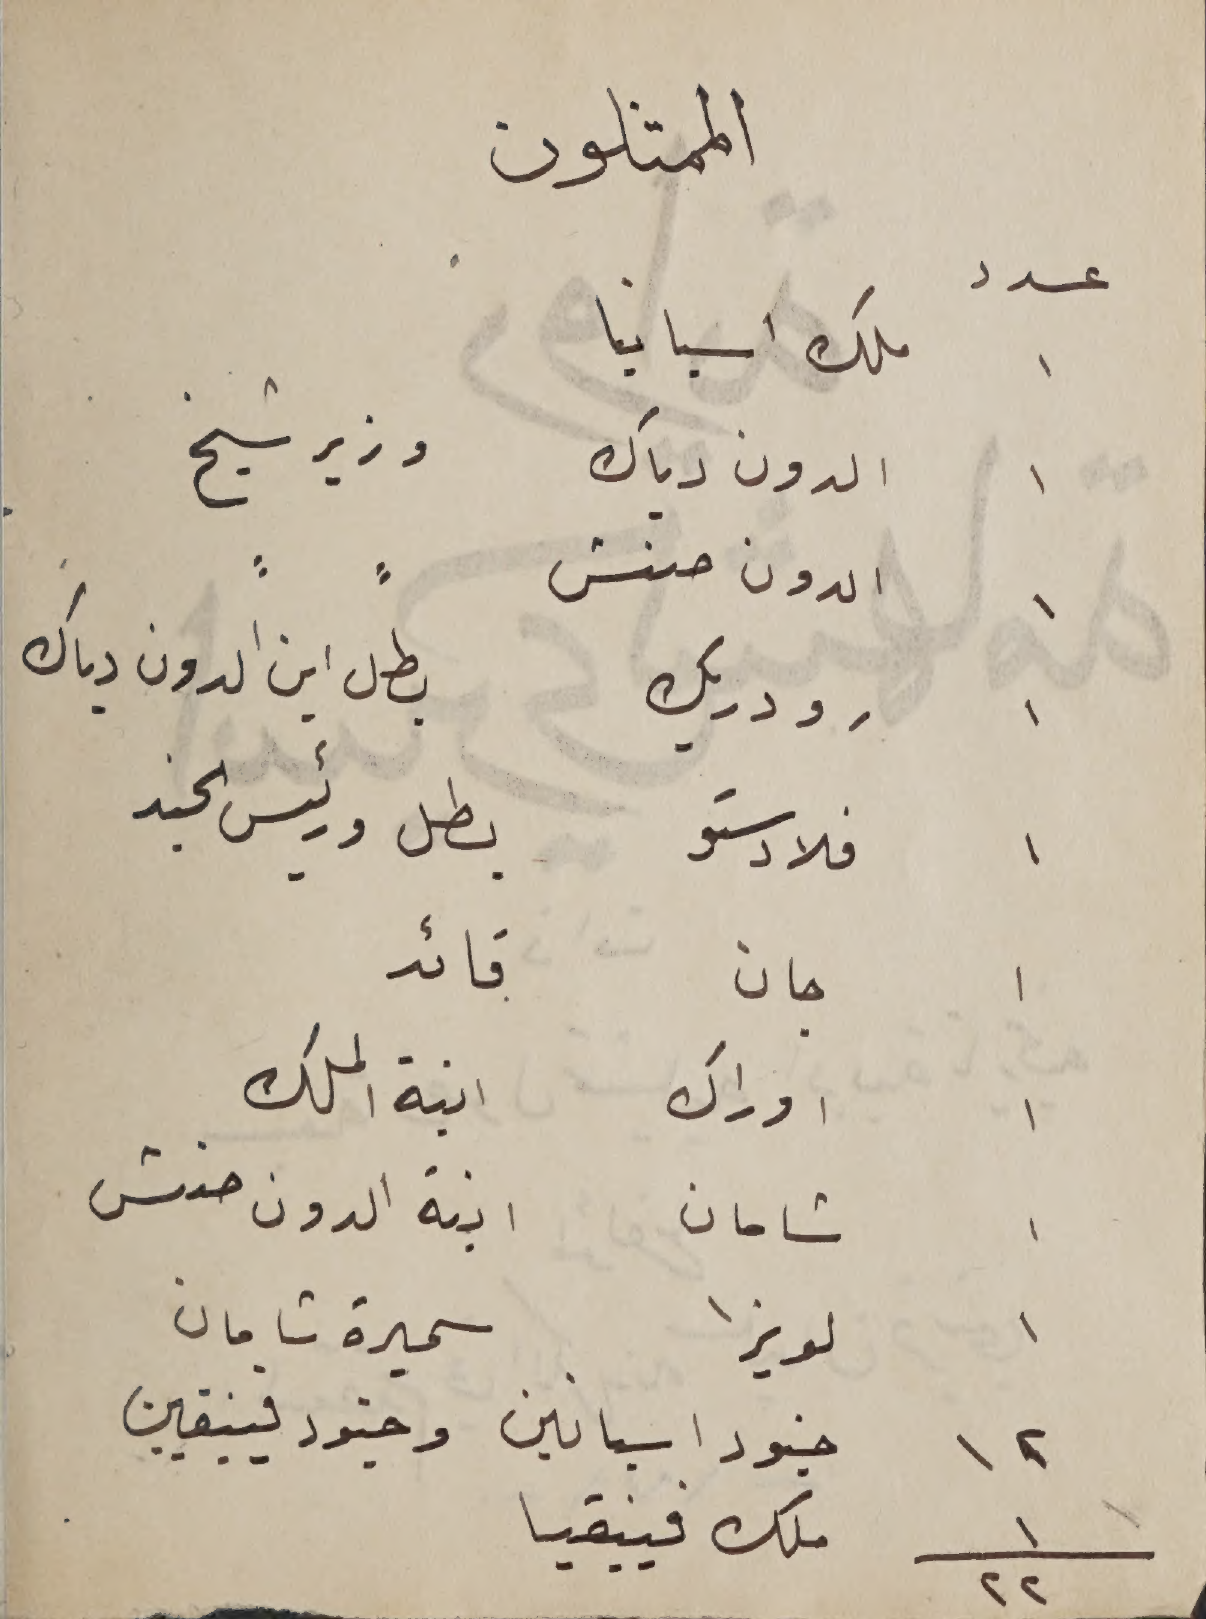 الممثلون
عدد
١ ملك اسبانيا
١ الدون دياك وزير شيخ
١ الدون صنتش " "
١ رودريك بطل ابن الدون دياك
١ فلادستو بطل ورئيس الجند
١ جان قائد
١ اوراك ابنة الملك
١ شامان ابنة الدون صنتش
١ لويزا سميرة شامان
١٢ جنود اسبانين وجنود فينيقين
١ ملك فينيقيا
٢٢